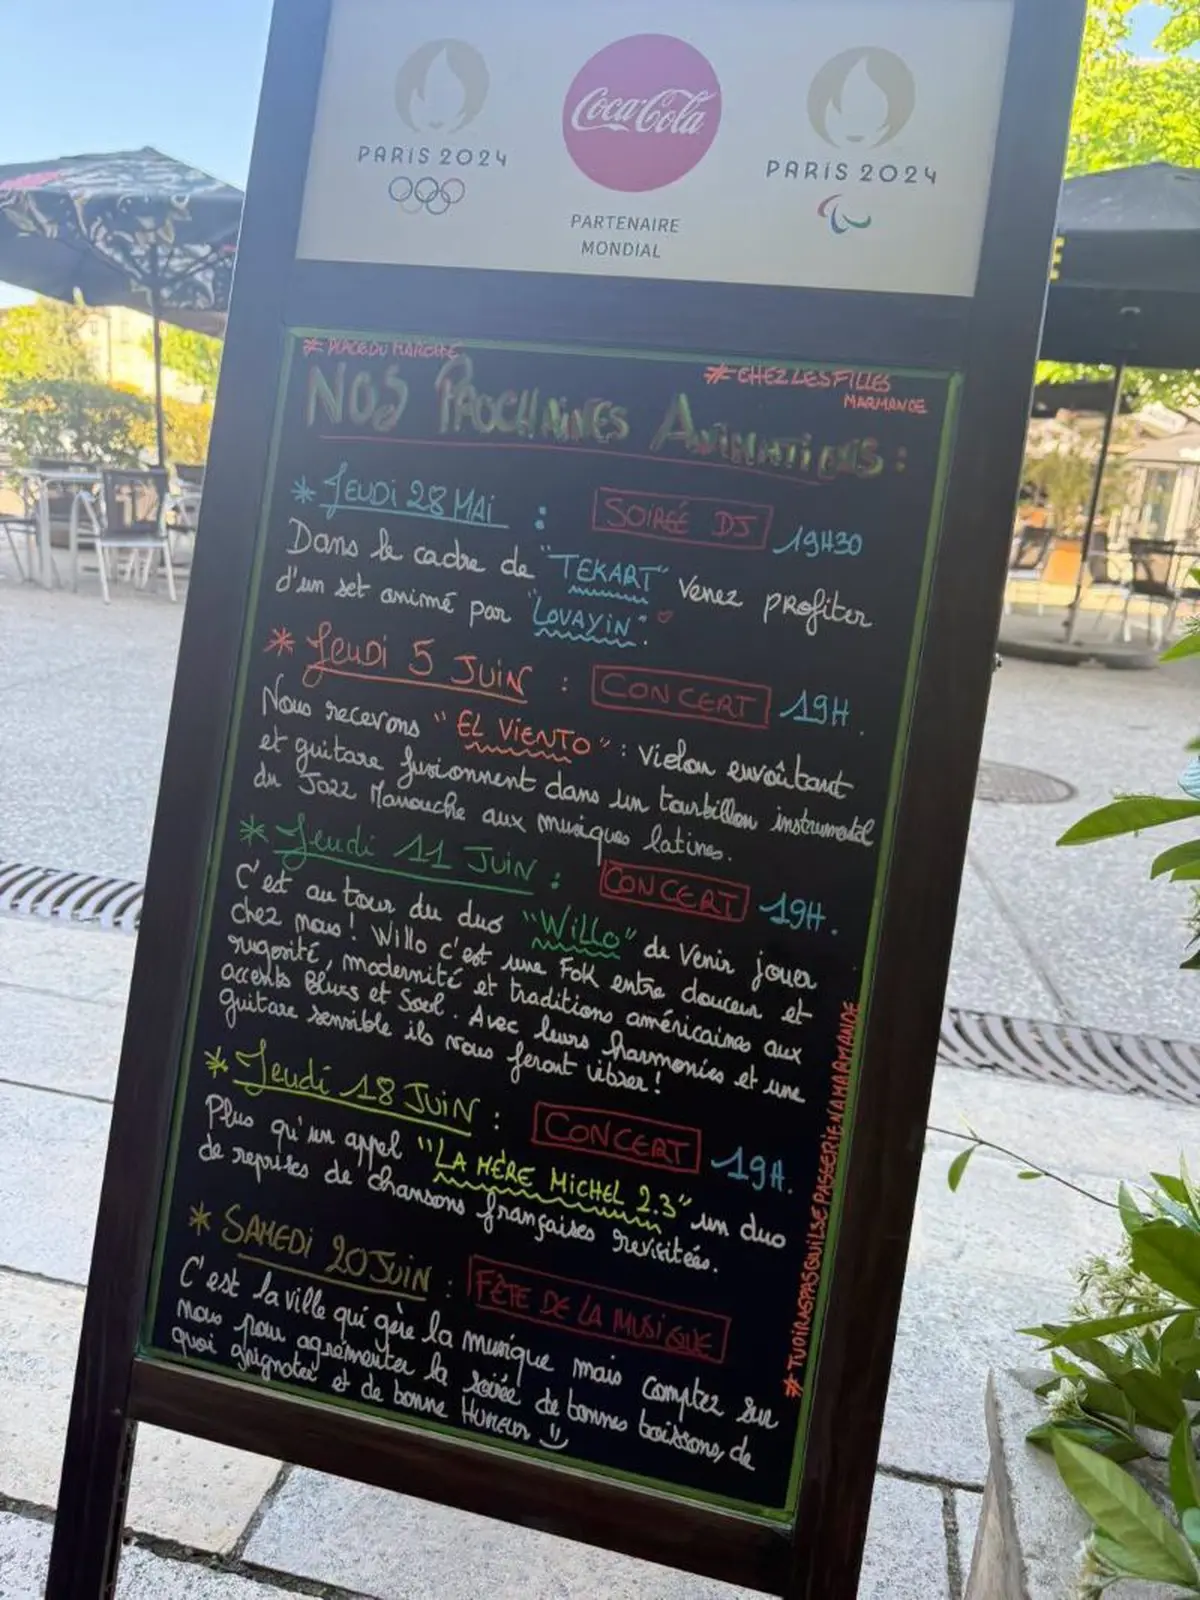 PARIS 2024
Coca-Cola
PARTENAIRE
MONDIAL
PARIS 2024
# PLACE DU MARCHÉ
# CHEZ LES FILLES
MARMANDE
NOS PROCHAINES ANIMATIONS :
* JEUDI 28 MAI : SOIRÉE DJ 19H30
Dans le cadre de "TEKART" venez profiter
d'un set animé par "LOVAYIN".
* Jeudi 5 JUIN : CONCERT 19H.
Nous recevons "EL VIENTO" : violon envoûtant
et guitare fusionnent dans un tourbillon instrumental
du Jazz Manouche aux musiques latines.
* Jeudi 11 JUIN : CONCERT 19H.
C'est au tour du duo "WILLO" de venir jouer
chez nous ! Willo c'est une Fok entre douceur et
rugosité, modernité et traditions américaines aux
accents Blues et Soul. Avec leurs harmonies et une
guitare sensible ils nous feront vibrer !
* Jeudi 18 JUIN : CONCERT 19H.
Plus qu'un appel "LA MÈRE MICHEL 2.3" un duo
de reprises de chansons françaises revisitées.
* SAMEDI 20 JUIN : FÊTE DE LA MUSIQUE
C'est la ville qui gère la musique mais comptez sur
nous pour agrémenter la soirée de bonnes boissons, de
quoi grignoter et de bonne Humeur
#TUDIRASPASQUILSEPASSERIENAMARMANDE